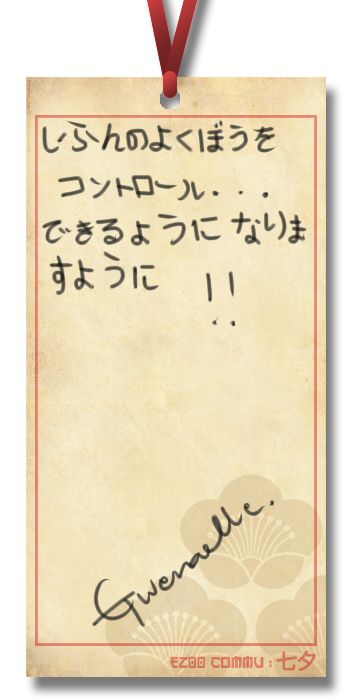 じぶんのよくぼうを
コントロール...
できるようになりま
すように !!
Gwenaelle.
EZOO COMMU : 七夕